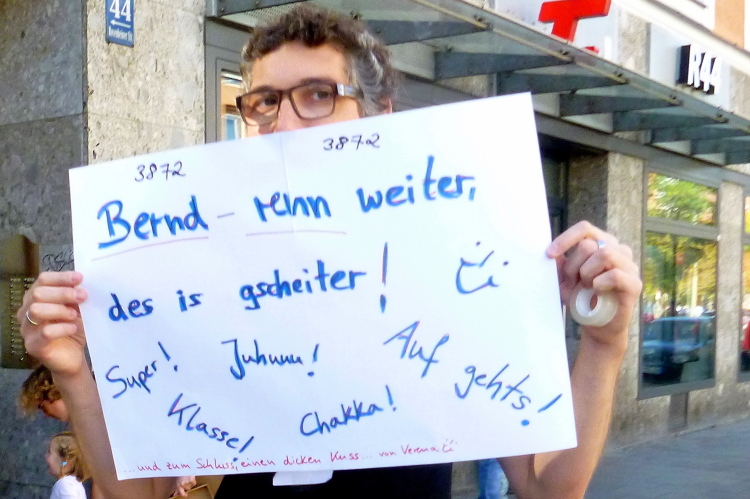 44
Rosenheimer Str.
R44
3872 3872
Bernd - renn weiter,
des is gscheiter!
Super! Juhuuu! Auf gehts!
Klasse! Chakka!
...und zum Schluss, einen dicken Kuss... von Verena